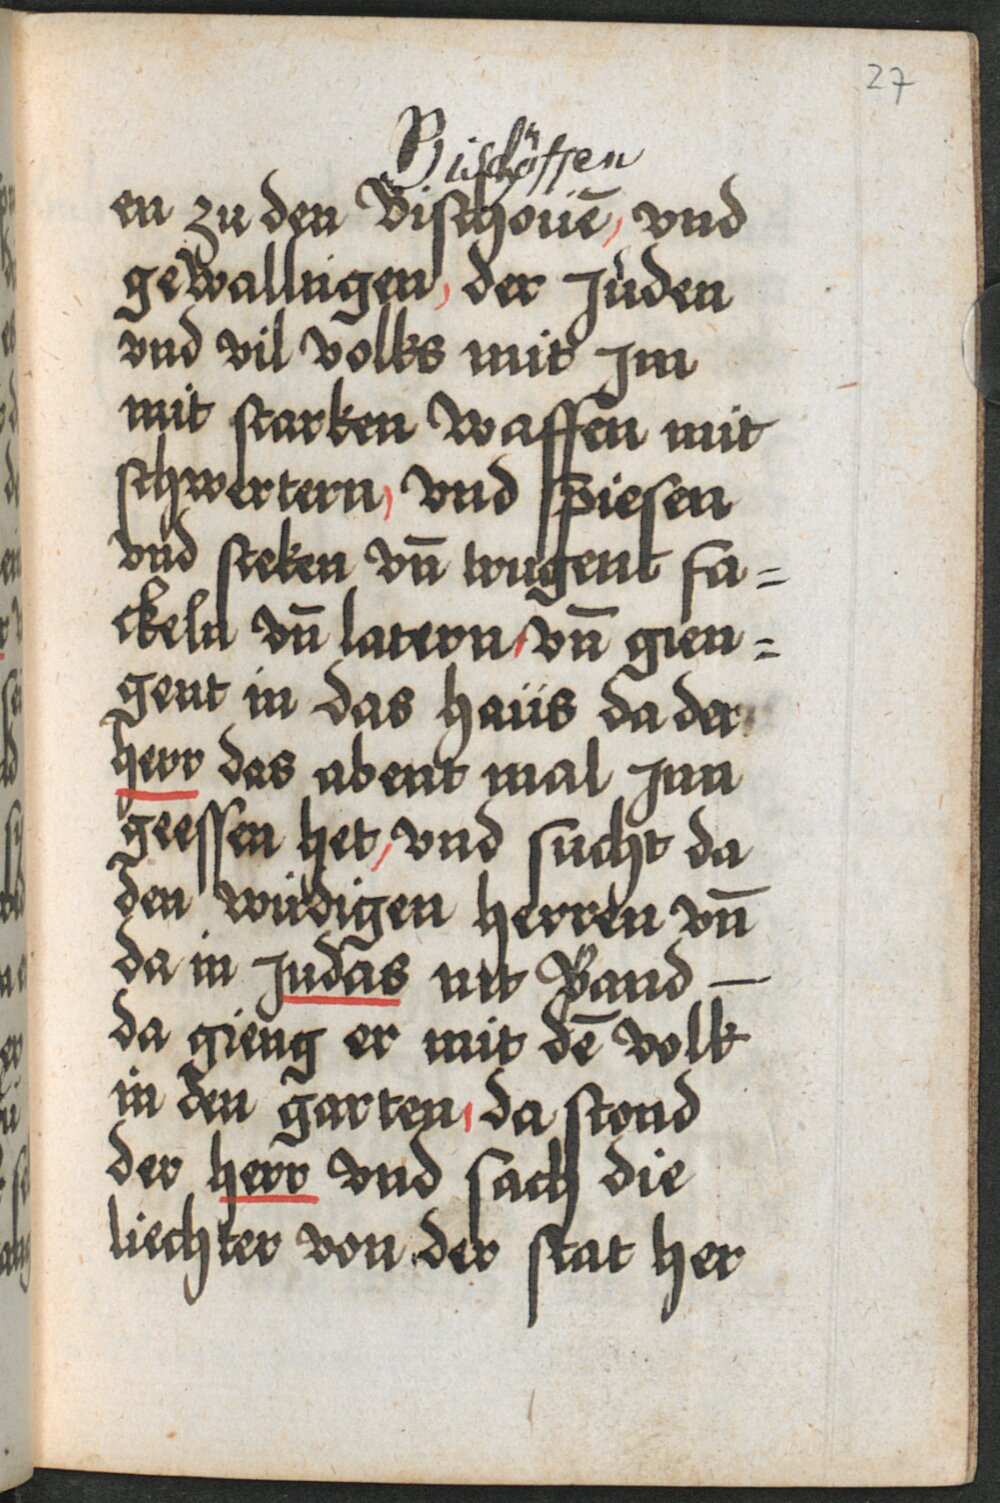 27
Bischöffen
en zu den Bischouē, vnd
gewalltigen, der Juden
vnd vil volks mit Jm
mit starken waffen mit
schwertern, vnd spiesen
vnd steken vn̄ trugent fa=
ckeln vn̄ latern, vn̄ gien=
gent in das haüs da der
herr das abent mal Jnn
geessen het, vnd sucht da
den würdigen herren vn̄
da in Judas nit Vand –
da gieng er mit dē volk
in den garten, da stond
der herr vnd sach die
liechter von der stat her